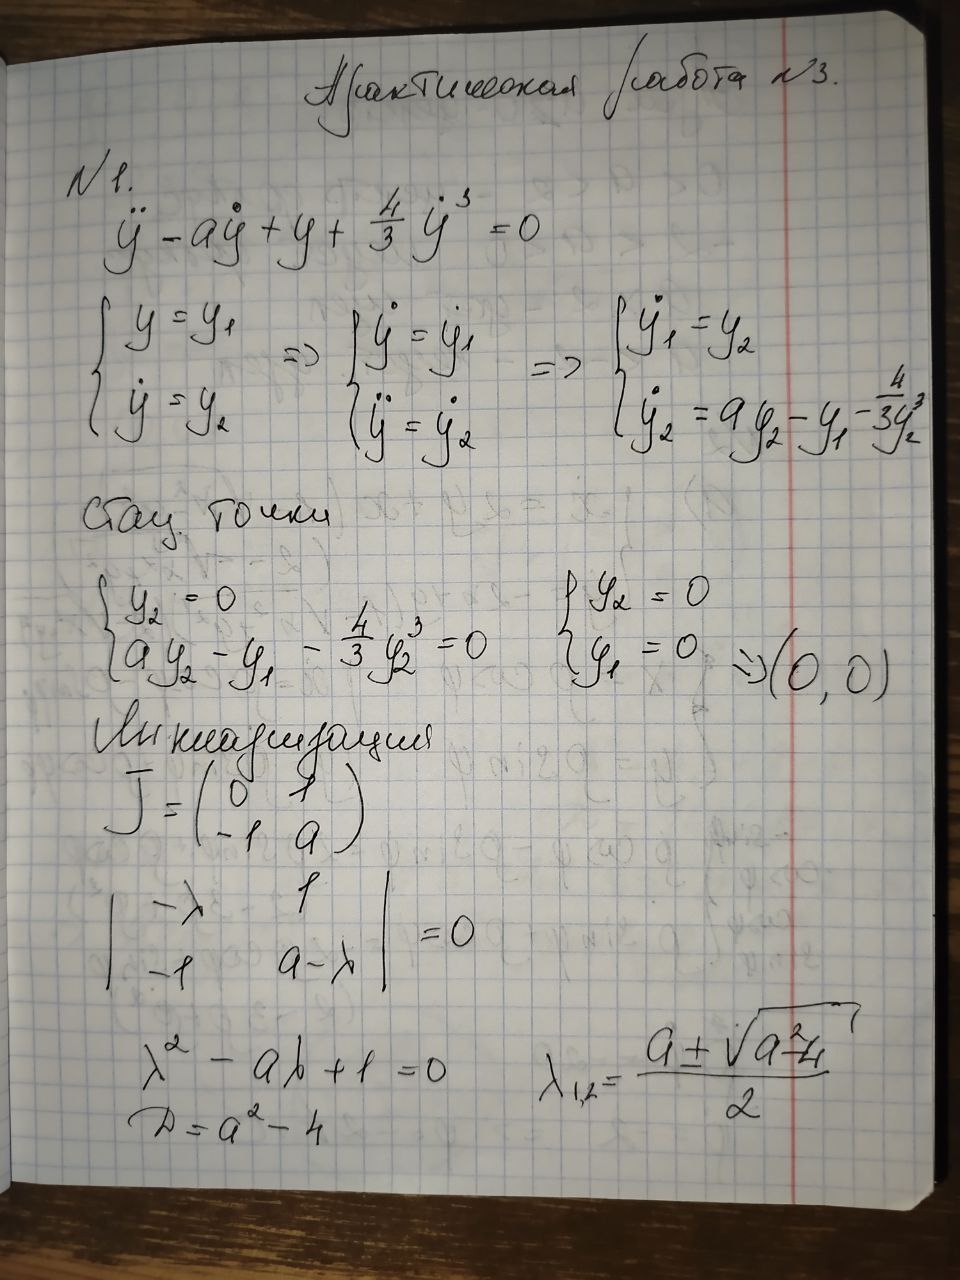 Практическая работа №3.
№1.
ÿ - aẏ + y + 4/3 ẏ³ = 0
{ y = y₁ ; ẏ = y₂ => { ẏ = ẏ₁ ; ÿ = ẏ₂ => { ẏ₁ = y₂ ; ẏ₂ = ay₂ - y₁ - 4/3 y₂³
Стац. точки
{ y₂ = 0 ; ay₂ - y₁ - 4/3 y₂³ = 0 { y₂ = 0 ; y₁ = 0 => (0, 0)
Линеаризация
J = ( 0 1 ; -1 a )
| -λ 1 ; -1 a-λ | = 0
λ² - aλ + 1 = 0 λ₁,₂ = (a ± √(a²-4)) / 2
D = a² - 4